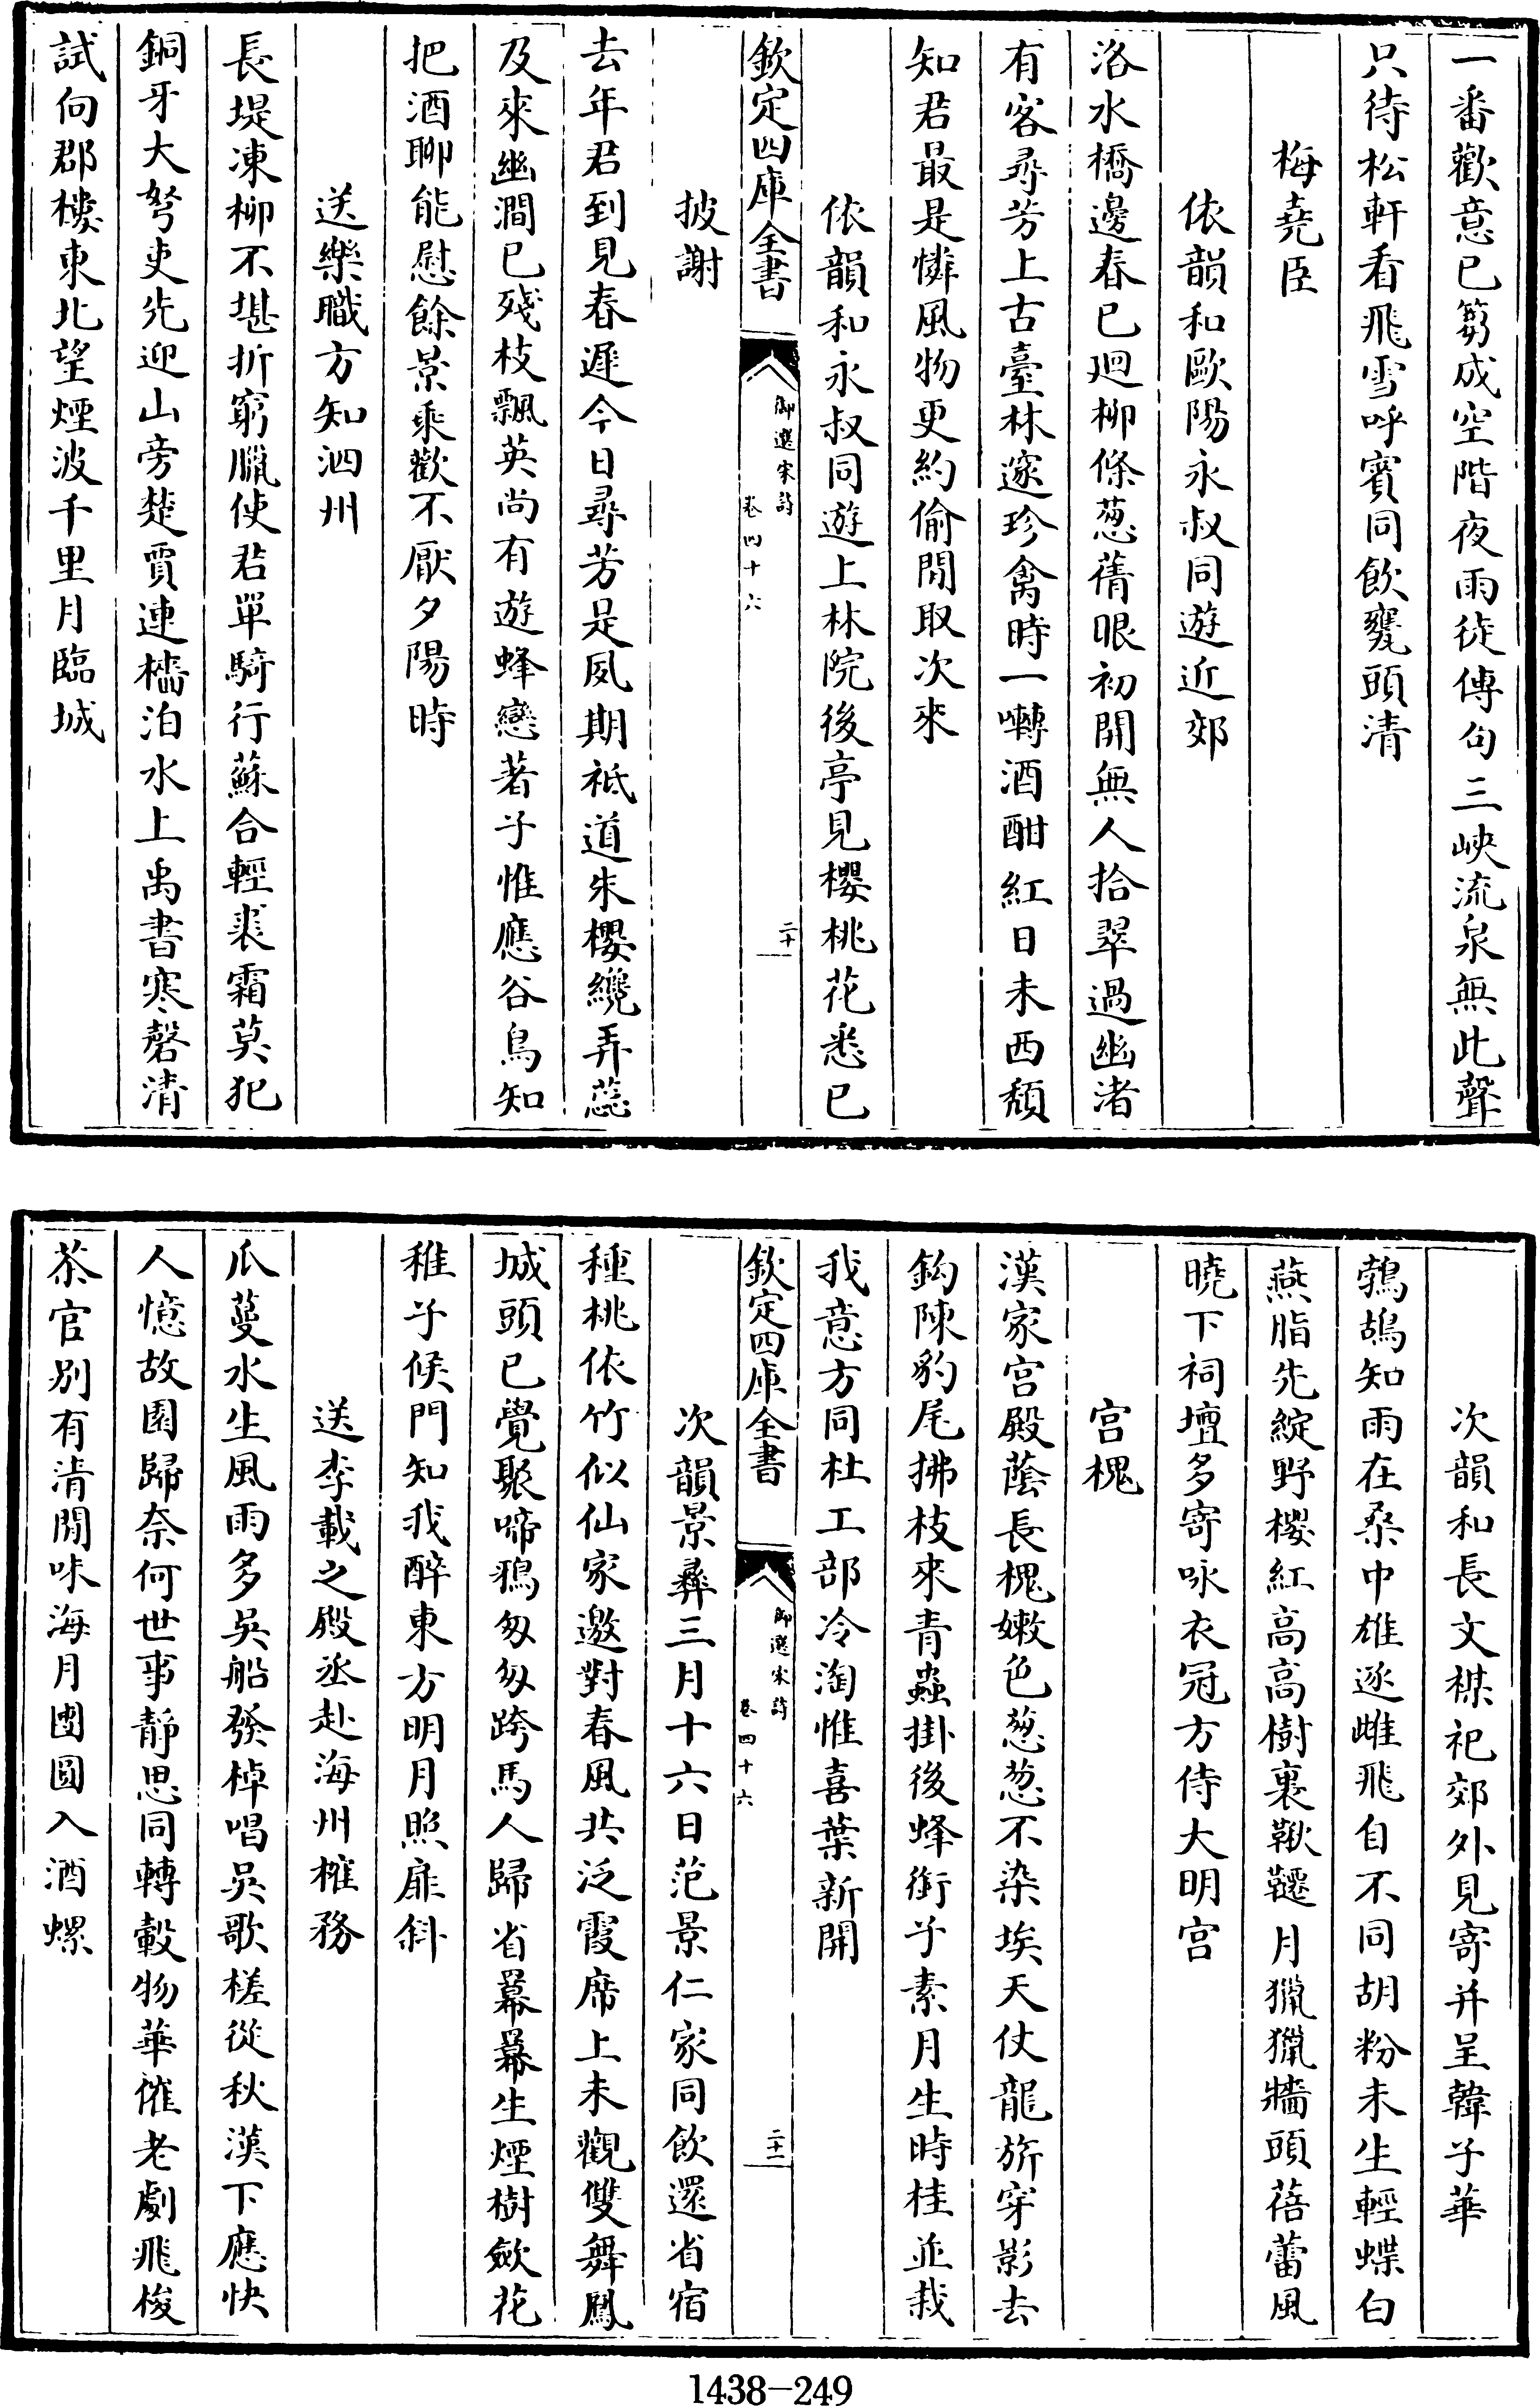 一番歡意已芻成空階夜雨徒傳句三峽流泉無此聲
只待松軒看飛雪呼賓同飲甕頭清
梅堯臣
依韻和歐陽永叔同遊近郊
洛水橋邊春已廻柳條葱蒨眼初開無人拾翠過幽渚
有客尋芳上古臺林邃珍禽時一囀酒酣紅日未西頽
知君最是憐風物更約偷閒取次來
依韻和永叔同遊上林院後亭見櫻桃花悉已
欽定四庫全書
御選宋詩
卷四十六
二十
披謝
去年君到見春遲今日尋芳是夙期祗道朱櫻纔弄蕊
及來幽澗已殘枝飄英尚有遊蜂戀著子惟應谷鳥知
把酒聊能慰餘景乘歡不厭夕陽時
送樂職方知泗州
長堤凍柳不堪折窮臘使君單騎行蘇合輕裘霜莫犯
銅牙大弩吏先迎山旁楚賈連檣泊水上禹書寒磬清
試向郡樓東北望煙波千里月臨城
次韻和長文禖祀郊外見寄并呈韓子華
鵓鴣知雨在桑中雄逐雌飛自不同胡粉未生輕蝶白
燕脂先綻野櫻紅高高樹裏鞦韆月獵獵牆頭蓓蕾風
曉下祠壇多寄咏衣冠方侍大明宮
宮槐
漢家宮殿蔭長槐嫩色葱葱不染埃天仗龍旂穿影去
鈎陳豹尾拂枝來青蟲掛後蜂銜子素月生時桂並栽
我意方同杜工部冷淘惟喜葉新開
欽定四庫全書
御選宋詩
卷四十六
二十一
次韻景彝三月十六日范景仁家同飲還省宿
種桃依竹似仙家邀對春風共泛霞席上未觀雙舞鳳
城頭已覺聚啼鵶匆匆跨馬人歸省羃羃生煙樹斂花
稚子候門知我醉東方明月照扉斜
送李載之殿丞赴海州榷務
瓜蔓水生風雨多吳船發棹唱吳歌槎從秋漢下應快
人憶故園歸奈何世事静思同轉轂物華催老劇飛梭
茶官别有清閒味海月團圓入酒螺
1438-249